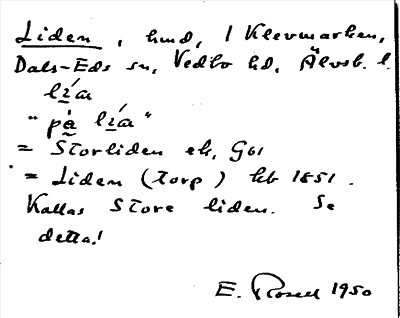 Liden, hmd, i Klevmarken,
Dals-Eds sn, Vedbo hd, Älvsb. l.
lía
"på lía"
= Storliden ek. G61
= Liden (torp) kb 1851.
Kallas Store liden. Se
detta!
E. Rosell 1950